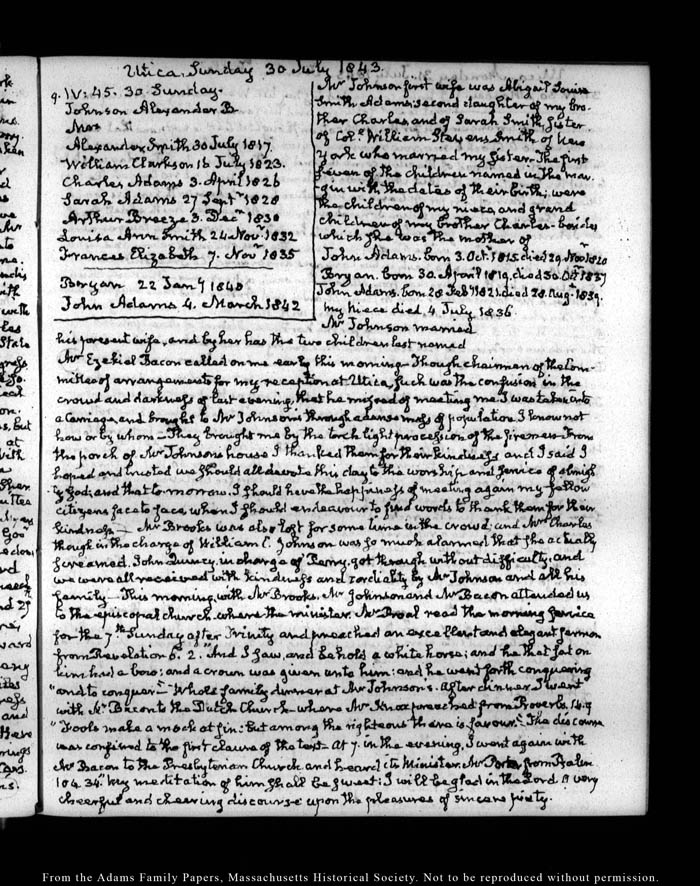 Utica, Sunday 30 July 1843.
IV: 45. 30 Sunday.
Johnson Alexander B
Mrs
Alexander Smith 30 July 1817.
William Clarkson 16 July 1823.
Charles Adams 3. April 1826
Sarah Adams 27 Septr 1828
Arthur Breeze 3. Decr 1830
Louisa Ann Smith 24 Novr 1832
Frances Elizabeth 7. Novr 1835
Bryan 22 Jany 1840
John Adams 4. March 1842
Mr Johnson first wife was Abigail Louisa
Smith Adams, second daughter of my bro-
ther Charles, and of Sarah Smith, Sister
of Coll. William Stevens Smith of New
York who married my Sister. The first
seven of the children named in the mar-
gin with the dates of their birth; were
the children of my niece, and grand
children of my brother Charles - besides
which she was the mother of
John Adams. born 3. Oct. 1815. died 29. Novr 1820
Bryan. born 30. April 1819. died 30. Octr 1837
John Adams. born 28 Feby 1821. died 28. Augt 1839.
my niece died, 4. July 1836.
Mr Johnson married
his present wife, and by her has the two children last named
Mr Ezekiel Bacon called on me early this morning - Though chairman of the Com-
mittee of arrangements for my reception at Utica, such was the confusion in the
crowd and darkness of last evening, that he missed of meeting me. I was taken into
a Carriage, and brought to Mr Johnson's through a dense mass of population, I know not
how or by whom - They brought me by the torch light procession of the firemen - From
the porch of Mr Johnson's house I thanked them for their kindness and I said I
hoped and trusted we should all devote this day to the worship and service of almigh-
ty God; and that to morrow, I should have the happiness of meeting again my fellow
citizens face to face, when I should endeavour to find words to thank them for their
kindness - Mr Brooks was also lost for some time in the crowd; and Mrs Charles
though in the charge of William C. Johnson was so much alarmed that she actually
screamed. John Quincy, in charge of Perry, got through without difficulty, and
we were all received with kindness and cordiality by Mr Johnson and all his
family - This morning, with Mr Brooks, Mr Johnson and Mr Bacon attended us
to the episcopal church, where the minister, Mr Proal read the morning service
for the 7th Sunday after Trinity and preached an excellent and elegant sermon
from Revelation 6. 2. "And I saw, and behold a white horse; and he that sat on
him had a bow; and a crown was given unto him: and he went forth conquering
"and to conquer - Whole family dinner at Mr Johnson's. After dinner I went
with Mr Bacon to the Dutch Church where Mr Knox preached from Proverbs. 14. 9
"Fools make a mock at sin: but among the righteous there is favour." The discourse
was confined to the first clause of the text - At 7. in the evening, I went again with
Mr Bacon to the Presbyterian Church and heard its Minister, Mr from Psalm
104. 34. "My meditation of him shall be sweet; I will be glad in the Lord. A very
cheerful and cheering discourse upon the pleasures of sincere piety.
From the Adams Family Papers, Massachusetts Historical Society. Not to be reproduced without permission.